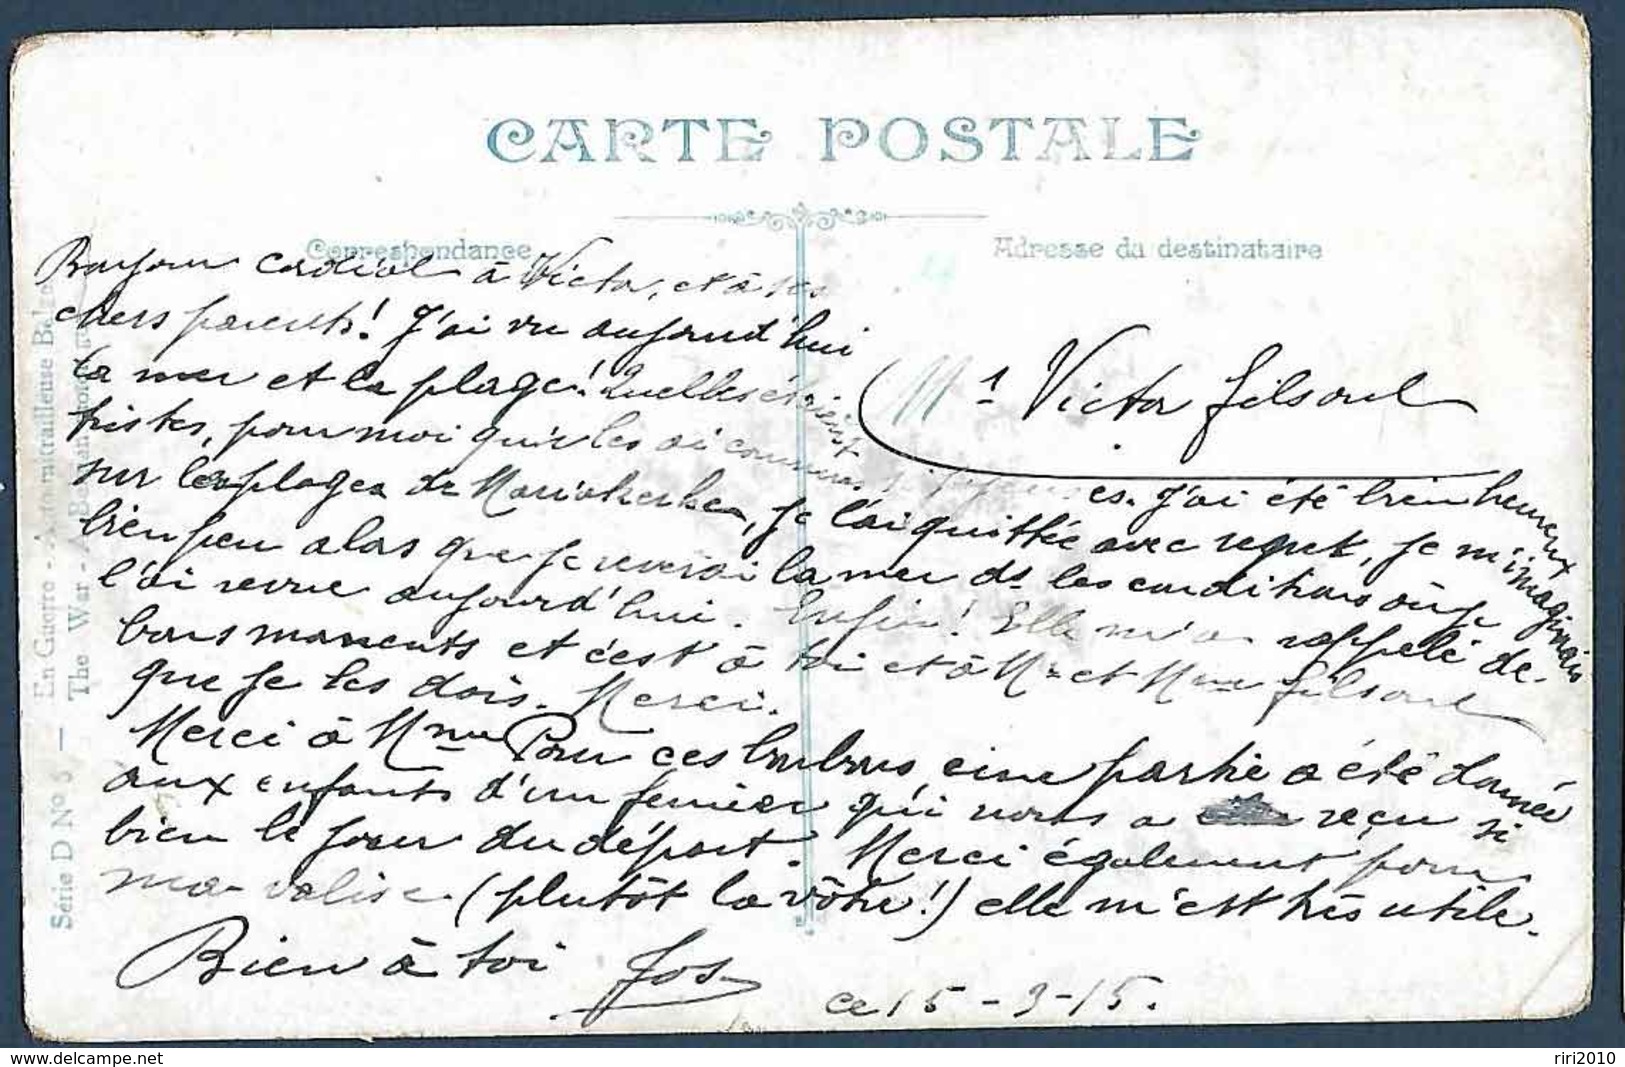 CARTE POSTALE
Correspondance
Adresse du destinataire
Bonjour cordial à Victor, et à ses
chers parents! J'ai vu aujourd'hui
la mer et la plage! Quelles étaient
tristes, pour moi qui les ai connues si joyeuses. J'ai été bien heureux
sur les plages de Mariakerke, je l'ai quittée avec regret, je m'imaginais
bien peu alas que je reverrai la mer ds les conditions où je
l'ai revue aujourd'hui. Enfin! Elle m'a rappelé de
bons moments et c'est à toi et à Mr et Mme Filsoul
que je les dois. Merci.
Merci à Mme Pour ces bonbons, une partie a été donnée
aux enfants d'un fermier qui nous a reçu si
bien le jour du départ. Merci également pour
ma valise. (plutôt la vôtre!) elle m'est très utile.
Bien à toi Jos
ce 15-3-15.
Mr Victor Filsoul
Série D No 5 — En Guerre - Automitrailleuse Belge
The War - A Belgian
riri2010
www.delcampe.net